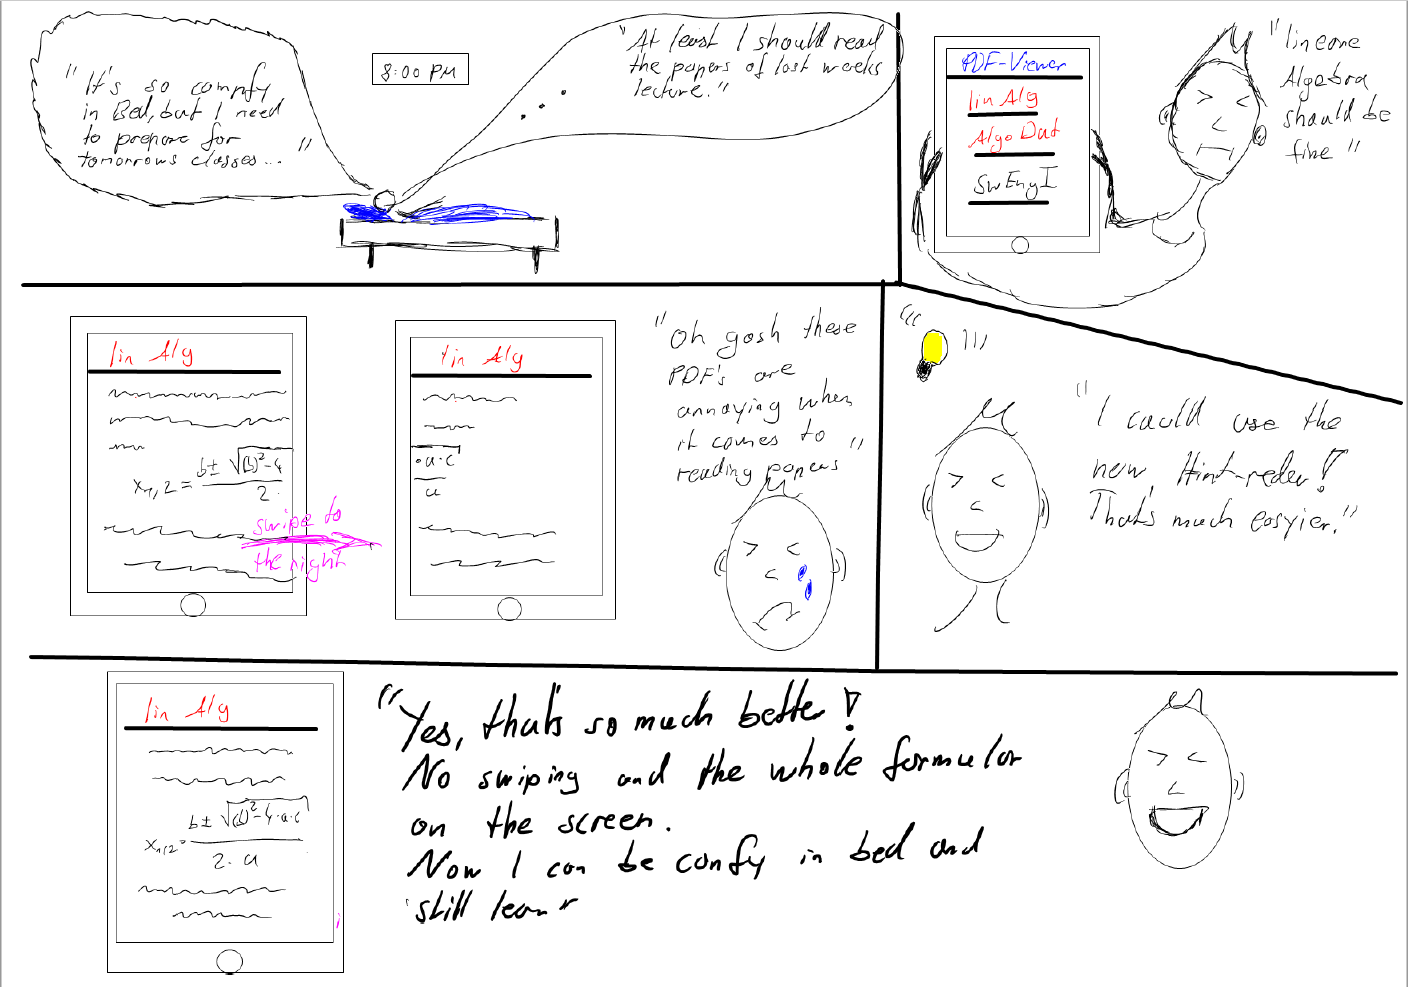 "It's so comfy
in Bed, but I need
to prepare for
tomorrows classes... "
8:00 PM
"At least I should read
the papers of last weeks
lecture."
PDF-Viewer
lin Alg
Algo Dat
SwEng I
"lineare
Algebra
should be
fine"
lin Alg
x1,2 = b± √(b)²-4
2.
swipe to
the right
lin Alg
·a·c
a
"Oh gosh these
PDF's are
annoying when
it comes to
reading papers"
"I could use the
new, Hint-reder!
That's much easyier."
lin Alg
x1/2= b± √(b)²-4·a·c
2·a
"Yes, that's so much better!
No swiping and the whole formular
on the screen.
Now I can be comfy in bed and
still learn"